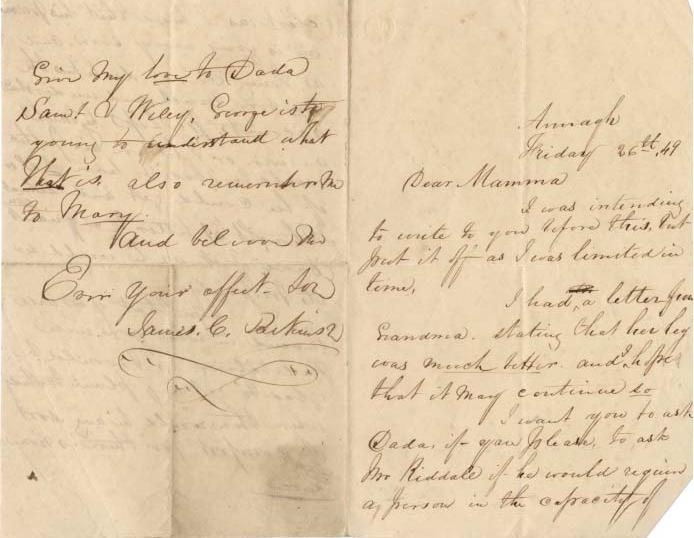 Armagh
Friday 26th, 49
Dear Mamma
I was intending
to write to you before this, but
put it off as I was limited in
time,
I had a letter from
Grandma. stating that her leg
was much better. and I hope
that it may continue so
I want you to ask
Dada, if you please, to ask
Mr Riddale if he would require
a person in the capacity of
Give my love to Dada
Saml & Wiley, George is to
young to understand what
that is. also remember me
to Mary.
and believe me
Ever your affect- son
James. C.